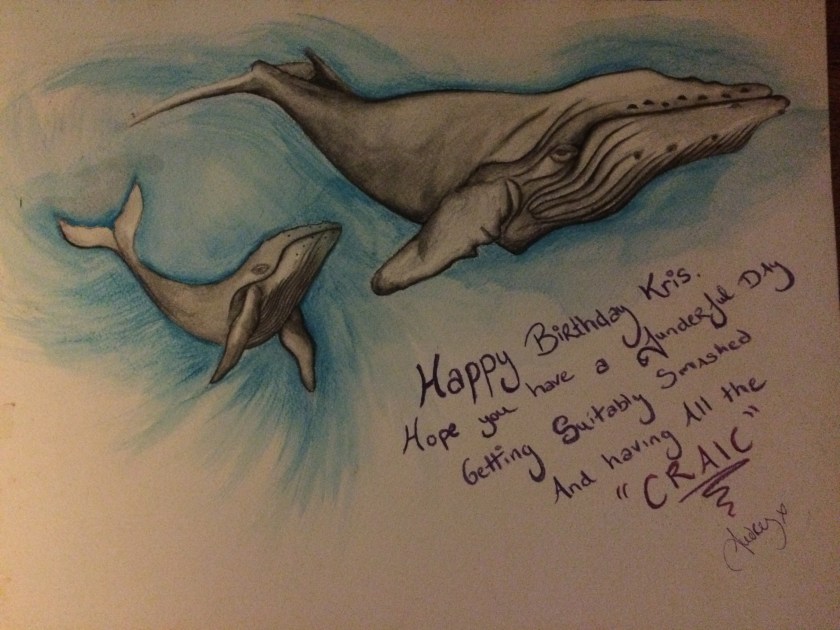 Happy Birthday Kris.
Hope you have a Wunderful DAy
Getting Suitably Smashed
And having All the
"CRAIC"